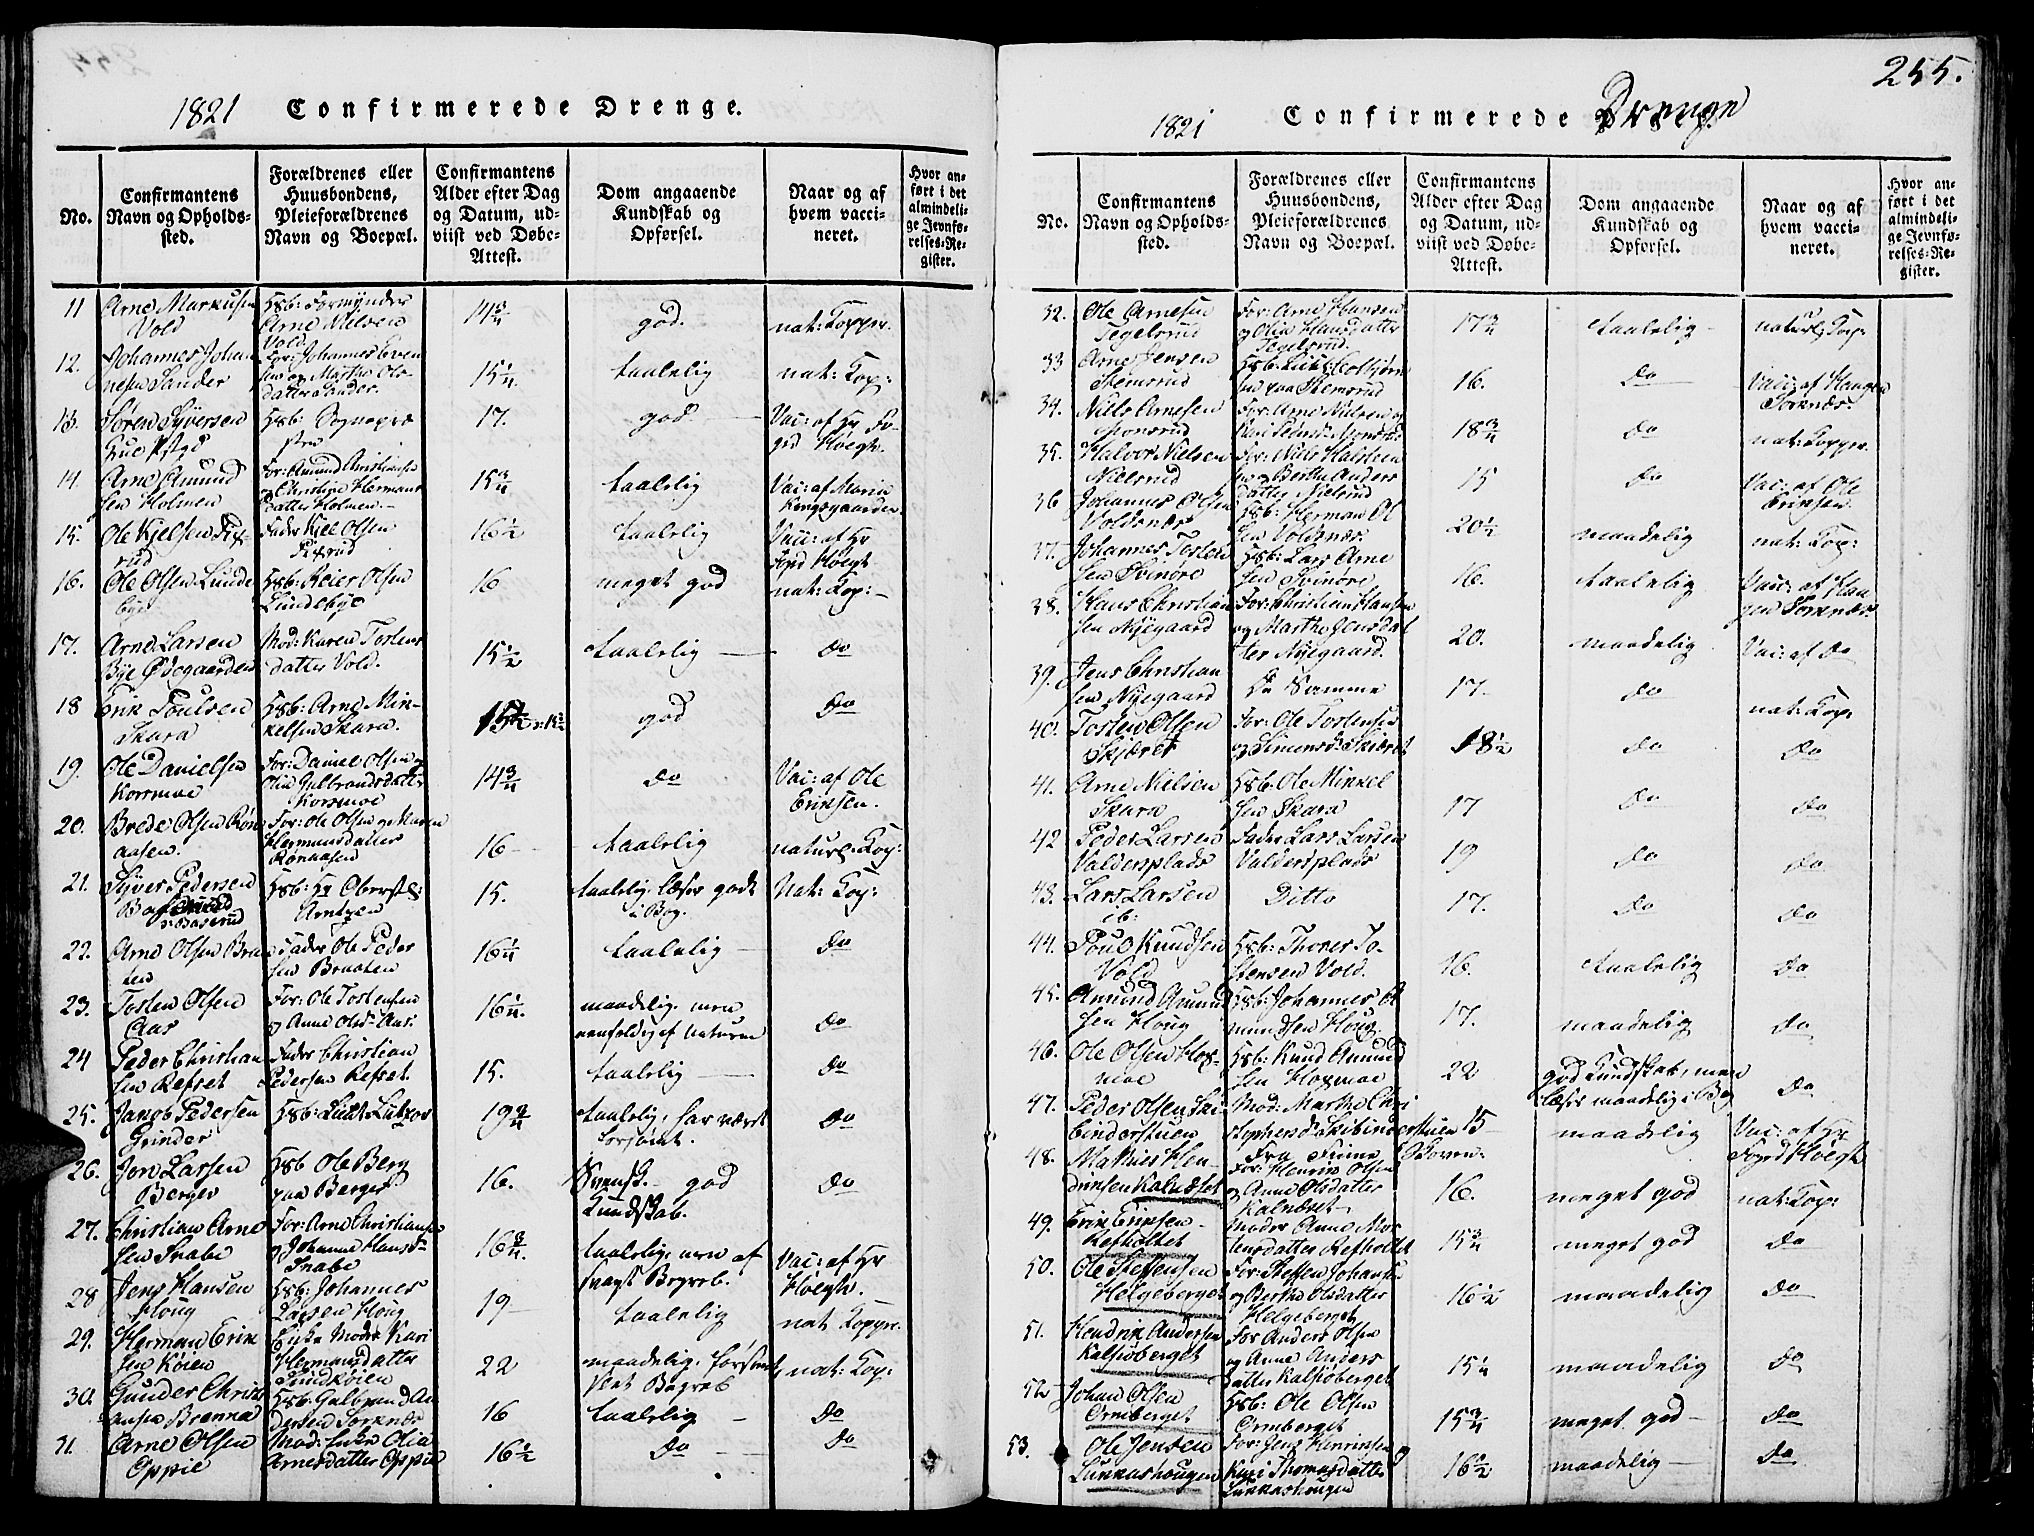 1821 Confirmerede Drenge.
No.
Confirmantens
Navn og Opholds-
sted.
Forældrenes eller
Huusbondens,
Pleieforældrenes
Navn og Boepæl.
Confirmantens
Alder efter Dag
og Datum, ud-
viist ved Døbe-
Attest.
Dom angaaende
Kundskab og
Opførsel.
Naar og af
hvem vacci-
neret.
Hvor an-
ført i det
almindeli-
ge Jevnfø-
relses-Re-
gister.
11 Arne Markusen Vold Hsb: Formynder Arne Nielsen Vold. 14 3/4 god. nat: Kopper.
12. Johannes Johannesen Sander For: Johannes Evensen og Marthe Olsdatter Sander. 15 1/4 taalelig nat: Kop:
13. Søren Syversen Hsb: Sognepræsten 17. god Vac: af Hr Foged Høegh.
14. Arne Amundsen Holmen For: Amund Christiansen og Christine Hermansdatter Holmen. 15 3/4 taalelig Vac: af Maria Kongsgaarden.
15. Ole Kjelsen Fader Kiel Olsen 16 1/2 taalelig Vacc: af Hr Foged Høegh
16. Ole Olsen Lundebye Hsb: Reier Olsen Lundebye 16 meget god nat: Kop:
17. Arne Larsen Bye Ødegaarden Mod: Karen Tostensdatter Vold. 15 1/2 taalelig do
18 Erik Poulsen Skara Hsb: Arne Minkelsen Skara. 15 1/2 god do
19. Ole Danielsen Korsmoe For: Daniel Olsen og Olia Gulbrandsdatter Korsmoe 14 3/4 do Vac: af Ole Eriksen.
20. Brede Olsen Rønaasen. For: Ole Olsen og Maren Hermundsdatter Rønaasen 16 taalelig naturl: Kop:
21. Syver Pedersen Baserud Hsb: Hr Oberstl: Arntzen 15. taalelig læser godt i Bog. Nat: Kop:
22. Arne Olsen Braaten Fader Ole Pedersen Braaten 16 1/4 taalelig do
23. Tosten Olsen Aas For: Ole Tostensen og Anne Olsd: Aas. 16 1/4. maadelig. men eenfoldig af Naturen do
24 Peder Christiansen Refset Fader Christian Pedersen Refset. 15. taalelig do
25. Jacob Pedersen Grinder Hsb: Luth Lützow 19 3/4 taalelig, har været forsømt. do
26. Jon Larsen Berger Hsb Ole Berg paa Berger 16. Svensk. god Kundskab. do
27. Christian Arnesen Snabe For: Arne Christiansen og Johanne Hansd: Snabe 16 3/4. taalelig. men af svagt Begreb. Vac: af Hr Høegh.
28 Jens Hansen Houg Hsb: Johannes Larsen Houg 19 taalelig nat Kopper.
29. Herman Eriksen Koien Enke Moder Kari Hermansdatter Sundkoien 22 maadelig. forsømt, slet Begreb nat: Kop:
30. Gunder Christiansen Brenna Hsb: Gulbrand Andersen Sorknæs 16 taalelig do
31 Arne Olsen Oppie Mod: Enke Olia Arnesdatter Oppie 16 1/2 do do
255.
1821 Confirmerede Drenge
No.
Confirmantens
Navn og Opholds-
sted.
Forældrenes eller
Huusbondens,
Pleieforældrenes
Navn og Boepæl.
Confirmantens
Alder efter Dag
og Datum, ud-
viist ved Døbe-
Attest.
Dom angaaende
Kundskab og
Opførsel.
Naar og af
hvem vacci-
neret.
Hvor an-
ført i det
almindeli-
ge Jevnfø-
relses-Re-
gister.
32. Ole Arnesen Tegelsrud For: Arne Hansen og Olia Hansdatter Tegelsrud. taalelig naturl: Kop:
33 Arne Jensen Stemsrud Hsb: Colbjørnsen paa Stemsrud 16. do Vac: af Haagen Sorknæs.
34. Niels Arnesen Monsrud For: Arne Nielsen og Kari Pedersd: Monsrud 18 3/4 do nat: Kopper.
35. Halvor Nielsen Nielsrud For: Niels Halstensen og Berthe Andersdatter Nielsrud 15 do Vac: af Ole Eriksen.
36 Johannes Olsen Voldsnæs Hsb: Herman Olsen Voldsnæs. 20 1/2 maadelig nat: Kop:
37. Johannes Tostensen Svinøre Hsb: Lars Arnesen Svinøre 16. taalelig Vac: af Haagen Sorknæs.
38. Hans Christiansen Nyegaard For: Christian Hansen og Marthe Jensdatter Nyegaard. 20. maadelig Vac: af do
39. Jens Christiansen Nyegaard De Samme 17. do nat: Kop:
40. Tosten Olsen Skjæret For: Ole Tostensen og Simensd: Skiæret 18 1/2 do do
41. Arne Nielsen Skara Hsb: Ole Minkelsen Skara 17 do do
42 Peder Larsen Valdersplads Fader Lars Larsen Valdersplads 19 do do
43. Lars Larsen ib: Ditto 17. do do
44. Poul Knudsen Vold Hsb: Thorer Tostensen Vold. 16. taalelig do
45. Amund Amundsen Houg Hsb: Johannes Amundsen Houg. 17. maadelig do
46. Ole Olsen Hoxmoe Hsb: Knud Amundsen Hoxmoe 22 god Kundskab, men læser maadelig i Bog do
47. Peder Olsen Skibinderstuen Mod: Marthe Christophersd: Skibinderstuen 15 maadelig Vac: af Hr Foged Høegh
Fra Finne Skoven:
48. Mathies Hendriksen Kalnæset For: Henrik Olsen og Anne Olsdatter Kalnæset 16. meget god nat: Kop:
49. Erik Eriksen Refholtet Moder Anne Mortensdatter Refholtet 15 3/4 meget god do
50. Ole Steffensen Helgeberget For: Steffen Johansen og Berthe Olsdatter Helgeberget 16 1/2 maadelig do
51. Hendrik Andersen Kalsioberget For Anders Olsen og Anne Andersdatter Kalsioberget 15 1/4 maadelig do
52 Johan Olsen Ornberget Hsb: Ole Olsen Ornberget 15 3/4 meget god do
53. Ole Jensen Lukkashougen For: Jens Henriksen og Kari Thomasdatter Lukkashougen 16 1/2 maadelig do